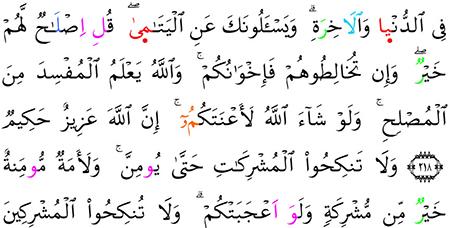 فِى ٱلدُّنْيا وَٱلَاخِرَةِ ۗ وَيَسْـَٔلُونَكَ عَنِ ٱلْيَتَـٰمىٰ ۖ قُلِ اِصْلَـٰحٌ لَّهُمْ
خَيْرٌ ۖ وَإِن تُخَالِطُوهُمْ فَإِخْوَٰنُكُمْ ۚ وَٱللَّهُ يَعْلَمُ ٱلْمُفْسِدَ مِنَ
ٱلْمُصْلِحِ ۚ وَلَوْ شَآءَ ٱللَّهُ لَأَعْنَتَكُمُۥٓ ۚ إِنَّ ٱللَّهَ عَزِيزٌ حَكِيمٌ
٢١٨ وَلَا تَنكِحُوا۟ ٱلْمُشْرِكَـٰتِ حَتَّىٰ يُومِنَّ ۚ وَلَأَمَةٌ مُّومِنَةٌ
خَيْرٌ مِّن مُّشْرِكَةٍ وَلَوَ اَعْجَبَتْكُمْ ۗ وَلَا تُنكِحُوا۟ ٱلْمُشْرِكِينَ